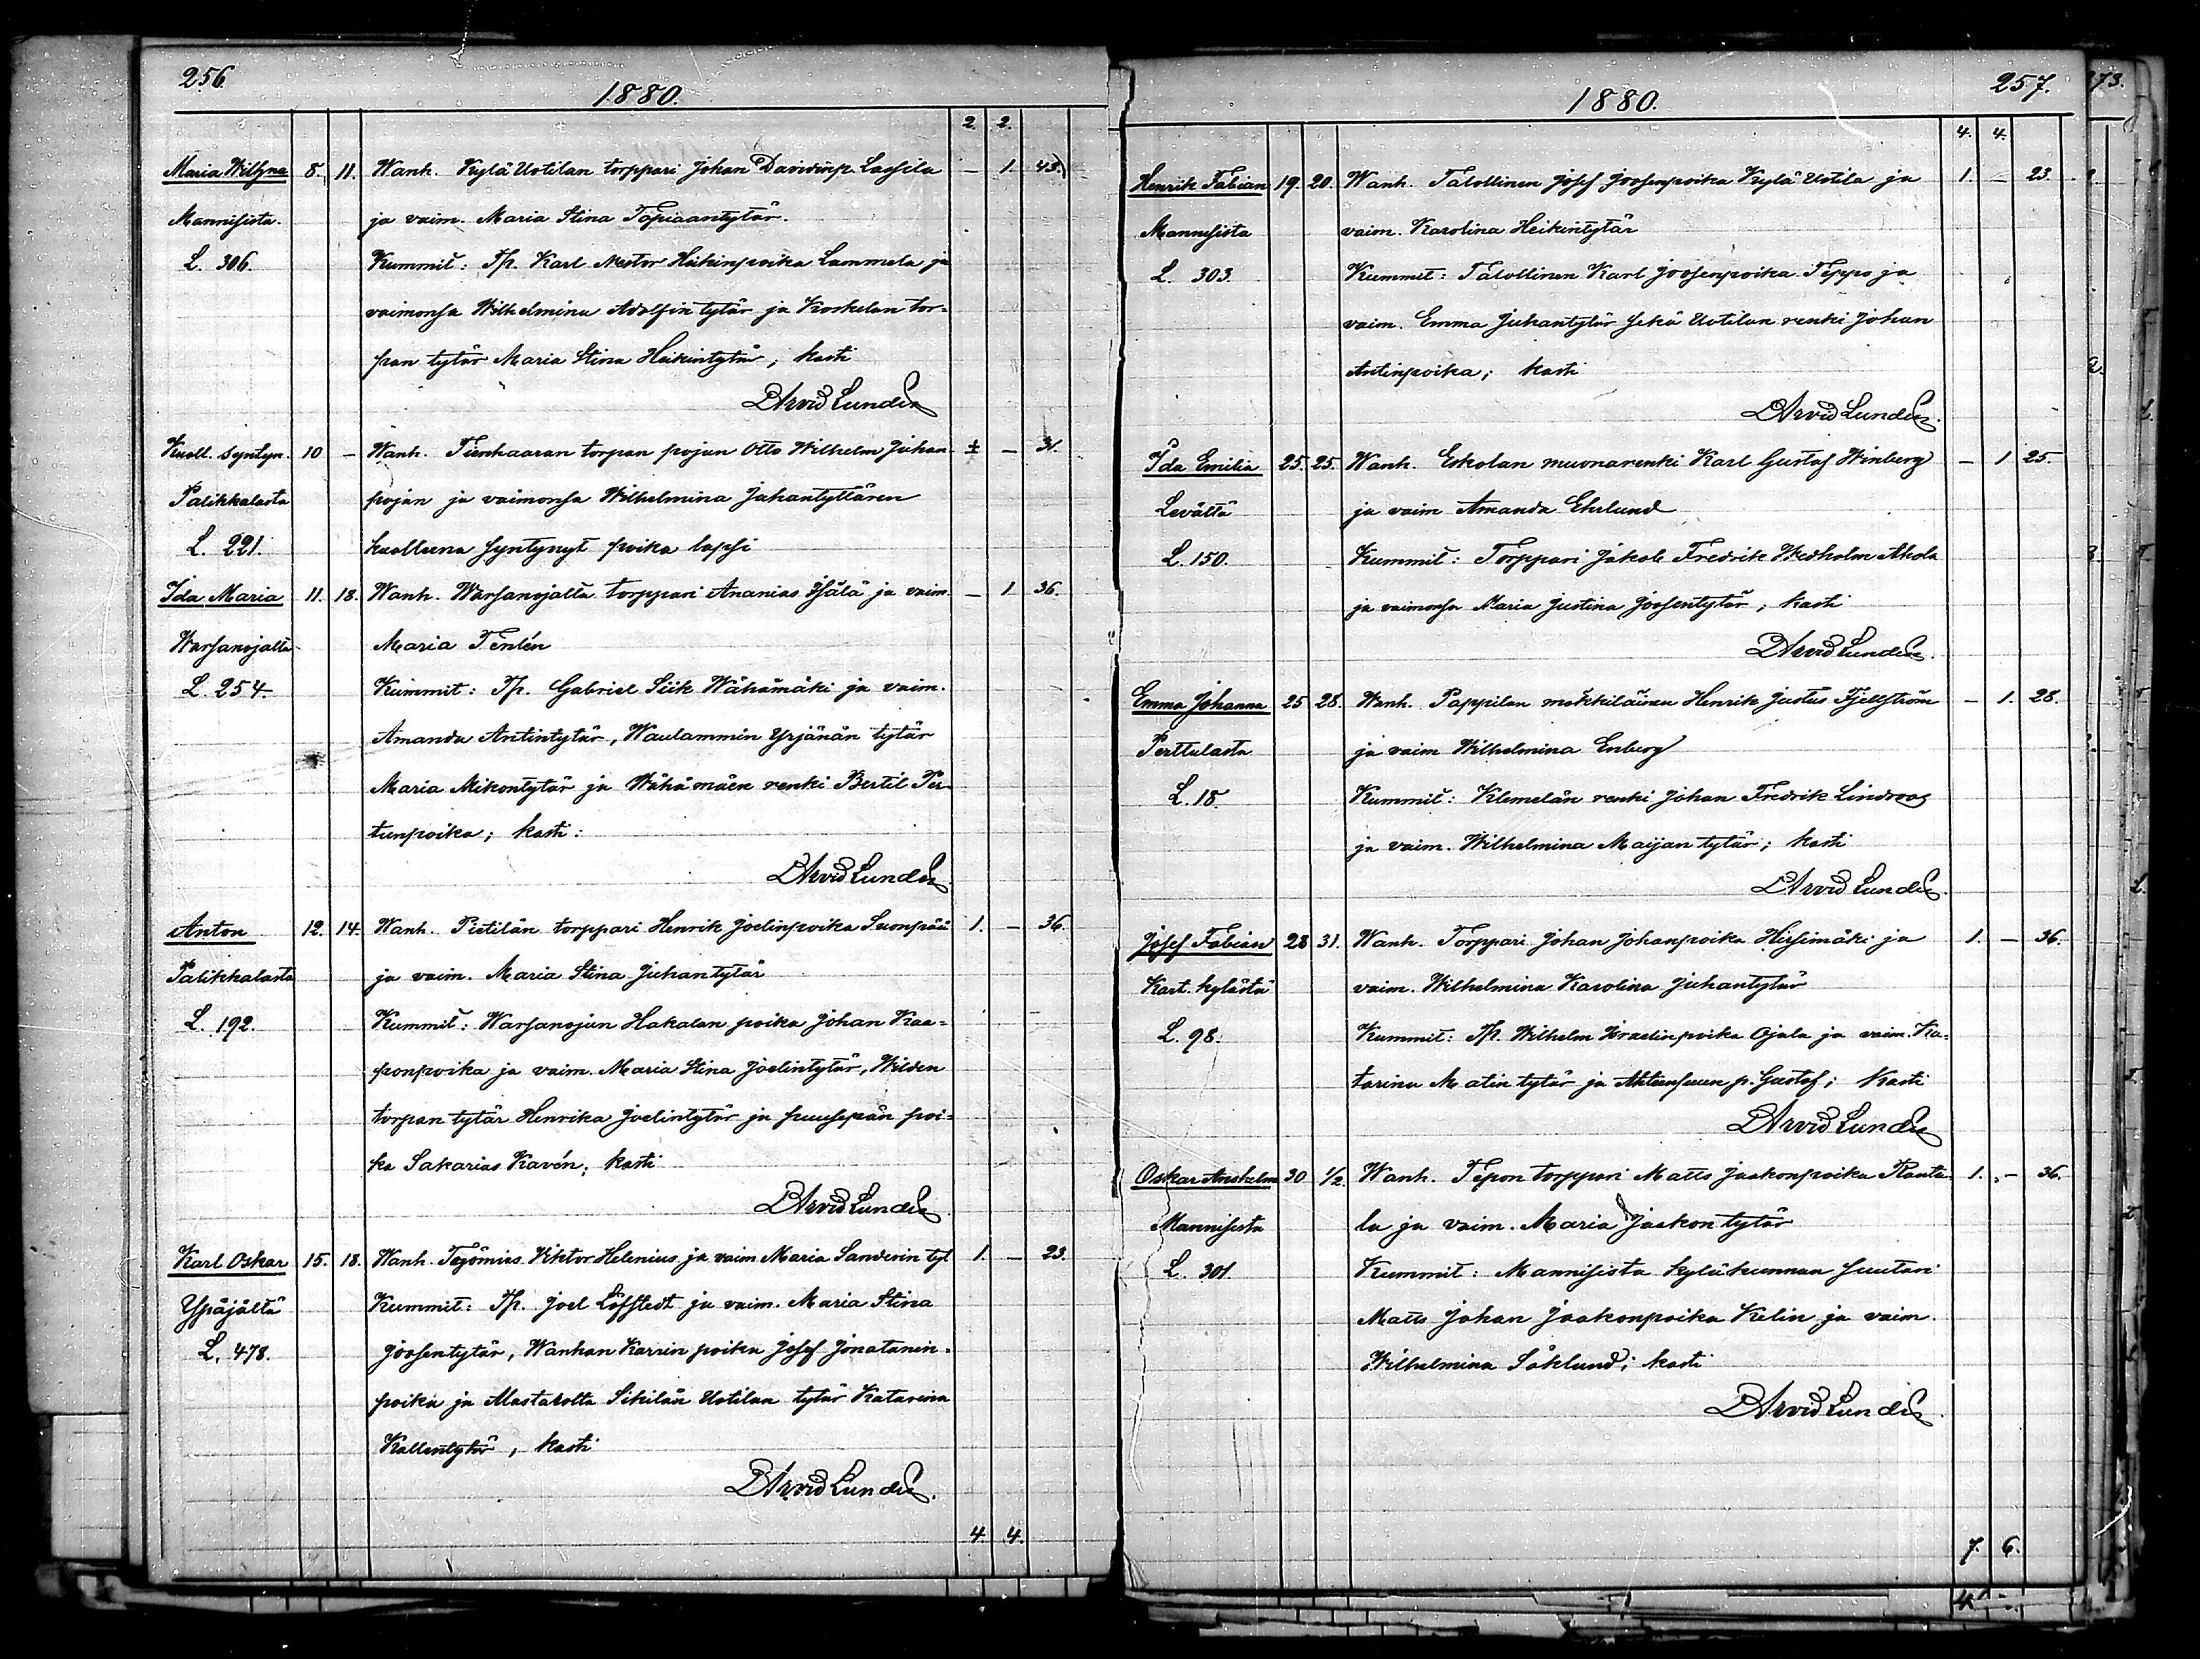 256.
1880.
2. 2.
Maria Wilhna 8. 11. Wanh. Kylä Uotilan torppari Johan Davidinp. Lassila — 1. 43.
Mannisista. ja vaim. Maria Stina Topiaantytär.
L. 306. Kummit: Tp. Karl Nestor Heikinpoika Lammela ja
vaimonsa Wilhelmina Adolfintytär ja Koskelan tor=
pan tytär Maria Stina Heikintytär; kasti
D Arvid Lundén
Kuoll. syntyn. 10 — Wanh. Tienhaaran torpan pojan Otto Wilhelm Juhan ± — 31.
Palikkalasta pojan ja vaimonsa Wilhelmina Juhantyttären
L. 221. kuolleena syntynyt poika lapsi
Ida Maria 11. 18. Wanh. Warsanojalta torppari Ananias Isälä ja vaim. — 1 36.
Warsanojalta Maria Tenlén
L. 254. Kummit: Tp. Gabriel Siik Wähämäki ja vaim.
Amanda Antintytär, Waulammin Yrjänän tytär
Maria Mikontytär ja Wähämäen renki Bertil Pie-
tunpoika; kasti:
D Arvid Lundén
Anton 12. 14. Wanh. Pietilän torppari Henrik Joelinpoika Suonpää 1. — 36.
Palikkalasta ja vaim. Maria Stina Juhantytär
L. 192. Kummit: Warsanojan Hakalan poika Johan Kaa=
ponpoika ja vaim. Maria Stina Joelintytär, Wilden
torpan tytär Henrika Joelintytär ja puusepän poi=
ka Sakarias Kavén; kasti
D Arvid Lundén
Karl Oskar 15. 18. Wanh. Työmies Viktor Helenius ja vaim Maria Sanderin tyt 1. — 23.
Ypäjältä Kummit: Tp. Joel Löfstedt ja vaim. Maria Stina
L. 478. Joosentytär, Wanhan Karrin poika Josef Jonatanin=
poika ja Mastakolta Sikilän Uotilan tytär Katarina
Kallentytär, kasti
D Arvid Lundén.
4. 4.
257.
1880.
4. 4.
Henrik Fabian 19. 20. Wanh. Talollinen Josef Joosenpoika Kylä Uotila ja 1. — 23.
Mannisista vaim. Karolina Heikintytär
L. 303. Kummit: Talollinen Karl Joosenpoika Teppo ja
vaim. Emma Juhantytär sekä Uotilan renki Johan
Antinpoika; kasti
D Arvid Lundén.
Ida Emilia 25. 25. Wanh. Eskolan muonarenki Karl Gustaf Winberg — 1 25.
Levältä ja vaim Amanda Ehrlund
L. 150. Kummit: Torppari Jakob Fredrik Wedholm Ahola
ja vaimonsa Maria Justina Joosentytär; kasti
D Arvid Lundén.
Emma Johanna 25 28. Wanh. Pappilan mökkiläinen Henrik Justus Fjellström — 1. 28.
Perttulasta ja vaim Wilhelmina Enberg
L. 18. Kummit: Klemelän renki Johan Fredrik Lindroos
ja vaim. Wilhelmina Maijantytär; kasti
D Arvid Lundén.
Josef Fabian 28 31. Wanh. Torppari Johan Johanpoika Hirsimäki ja 1. — 36.
Kart. kylästä vaim. Wilhelmina Karolina Juhantytär
L. 98. Kummit: Tp. Wilhelm Israelinpoika Ojala ja vaim. Ka=
tarina Matintytär ja p. Gustaf; Kasti
D Arvid Lundén
Oskar Anshelm 30 1/2 Wanh. Tepon torppari Matts Jaakonpoika Ranta- 1. — 36.
Mannisista la ja vaim. Maria Jaakontytär
L. 301. Kummit: Mannisista kyläkunnan suutari
Matts Johan Jaakonpoika Kelin ja vaim.
Wilhelmina Söklund; kasti
D Arvid Lundén.
7. 6.
273.